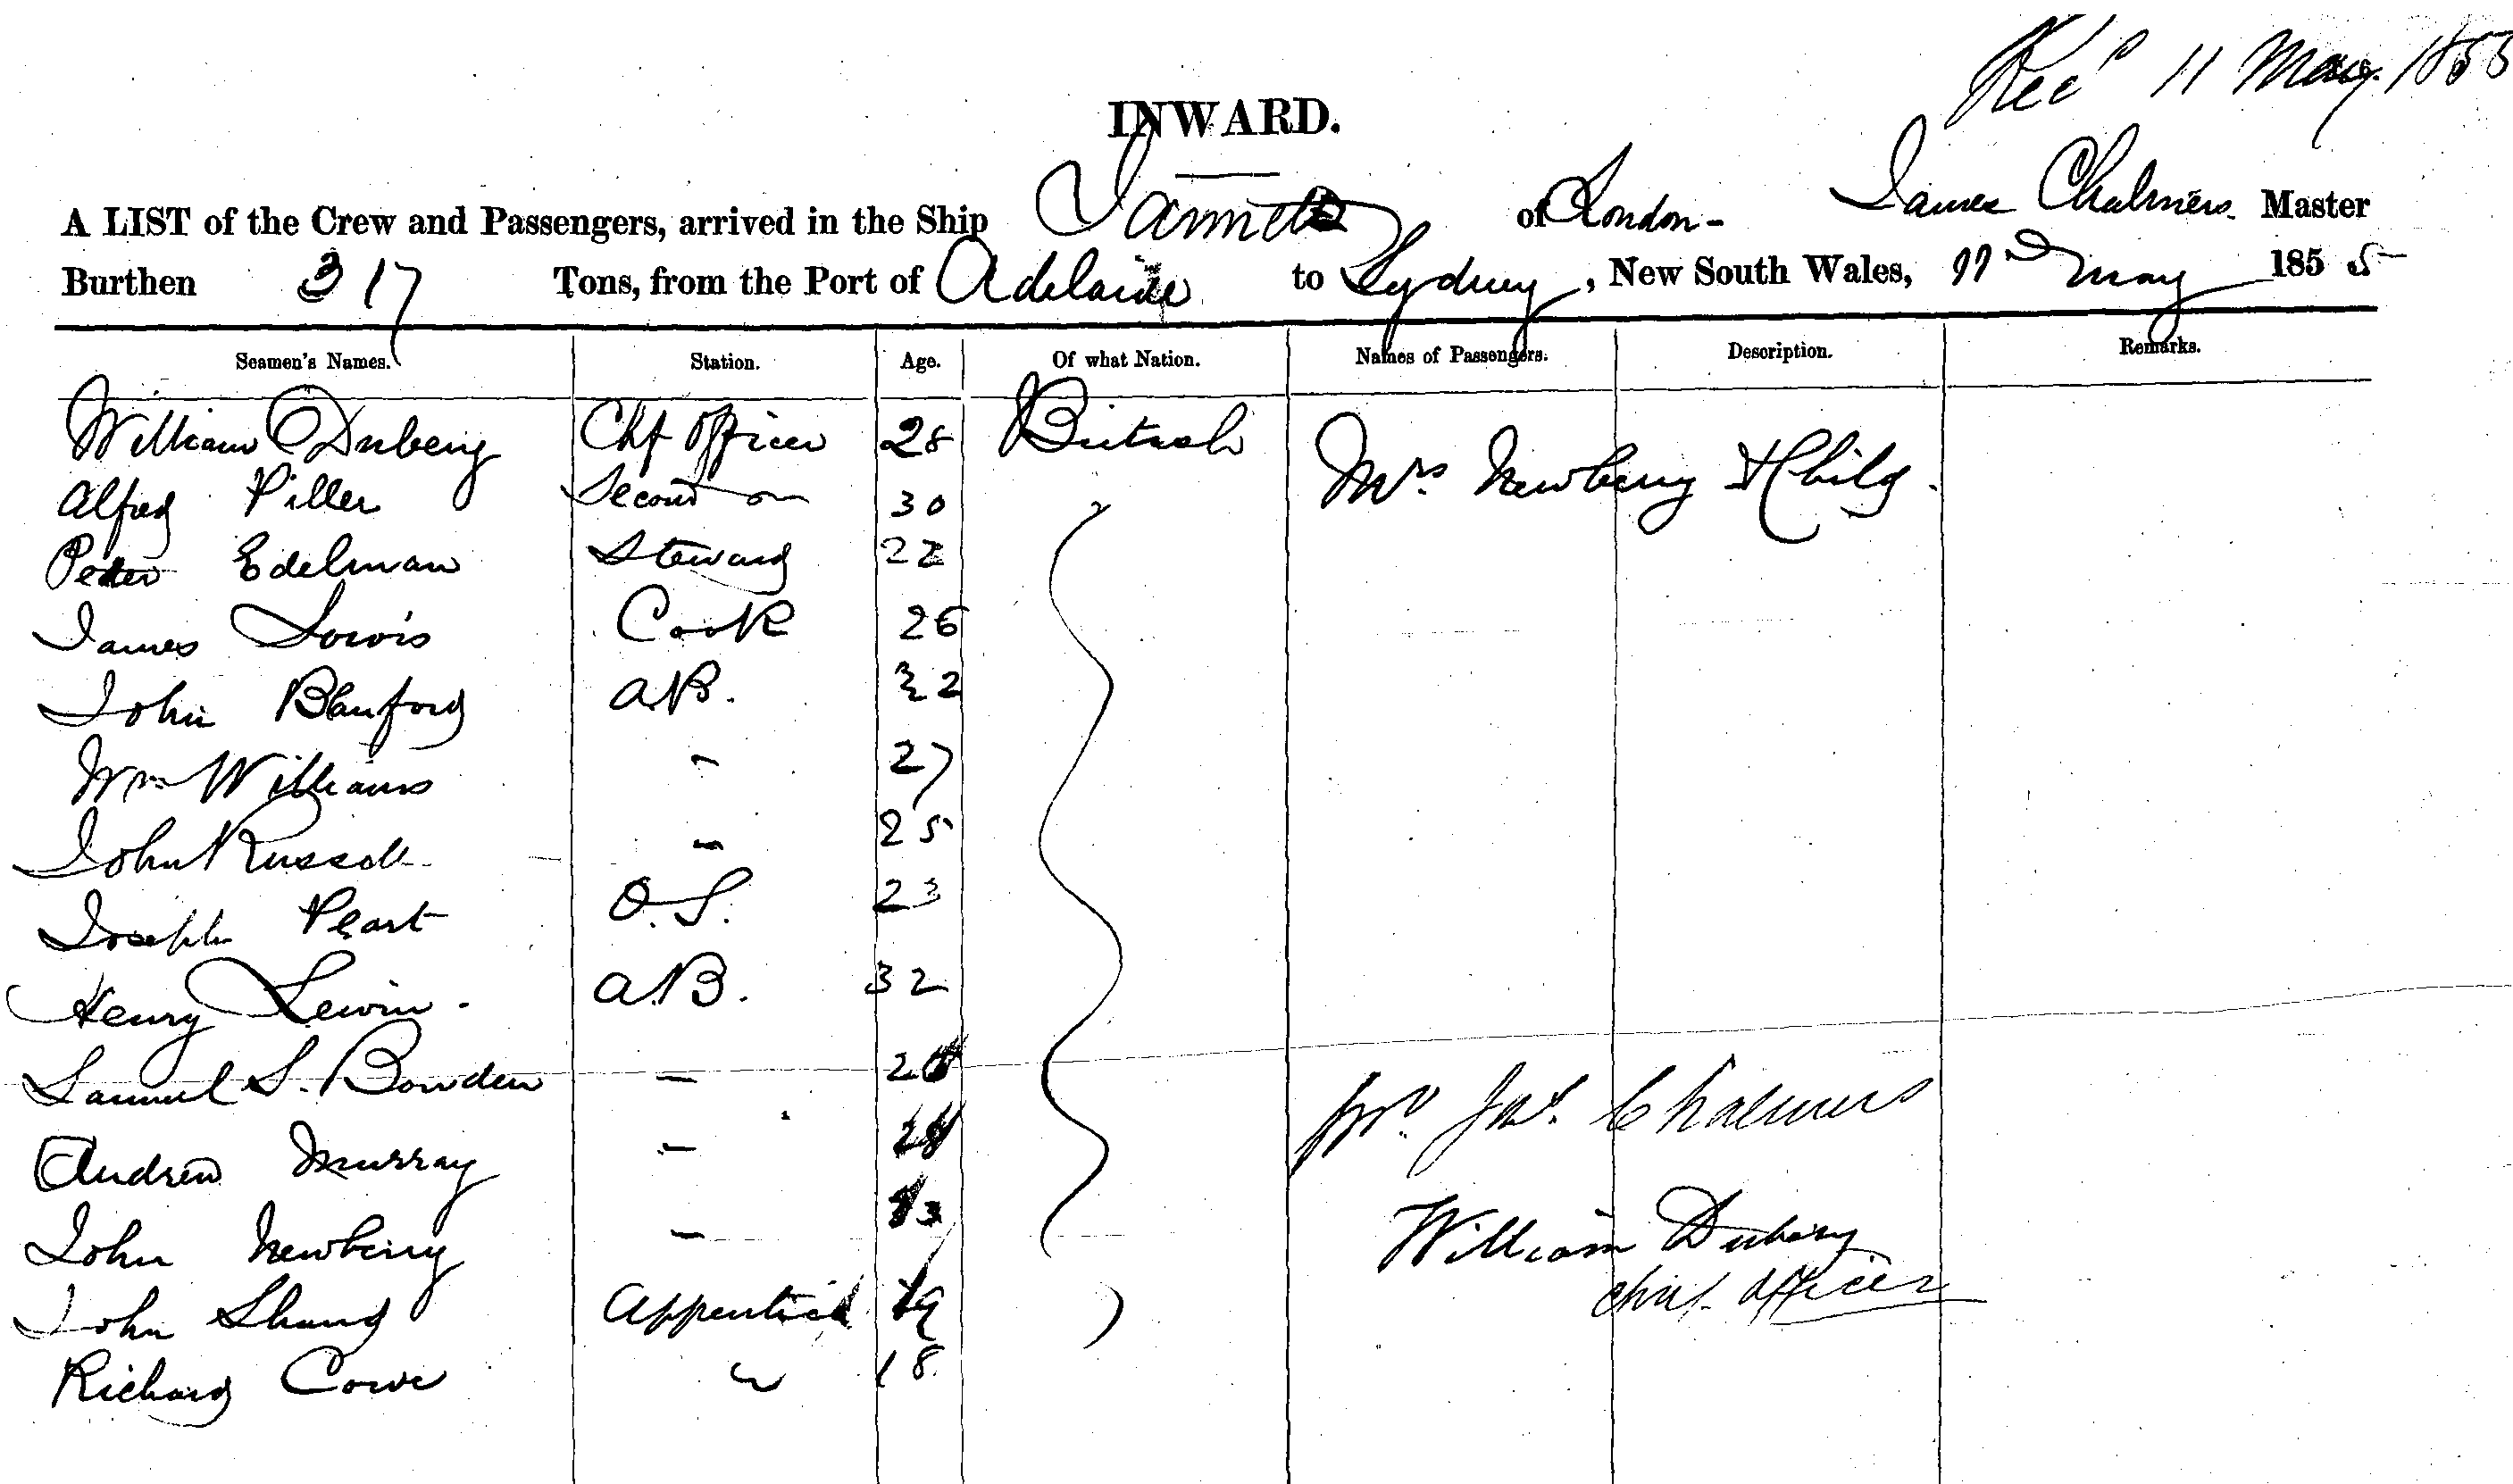 Recd 11 May 1855
INWARD.
A LIST of the Crew and Passengers, arrived in the Ship of London - James Chalmers. Master
Burthen 317 Tons, from the Port of Adelaide to Sydney, New South Wales, 11th May 1855
Seamen's Names. Station. Age. Of what Nation. Names of Passengers. Description. Remarks.
William Dubery Chf Officer 28 British Mrs Newberry & Child.
Alfred Piller Second 30
Peter Edelman Steward 22
James Lowis Cook 26
John Banford AB. 32
Wm Williams " 27
John Russell " 25
Joseph Peart O.S. 23
Henry Lewin - A.B. 32
Samuel S. Bowden "
pro Jas. Chalmers
Andrew Murray "
John Newberry "
William Dubery
Chief Officer
John Apprentice 19
Richard Cowe " 18